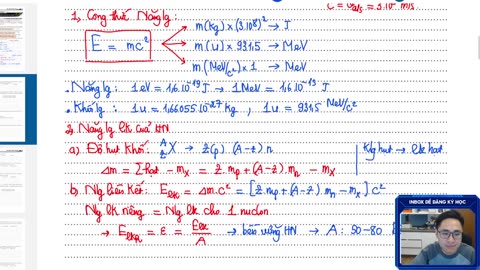 c = v_a/s = 3.10^8 m/s.
1, Công thức Năng lg :
E = mc²
m (kg) × (3.10^8)² → J
m (u) × 931,5 → MeV
m (MeV/c²) × 1 → MeV
. Năng lg : 1eV = 1,6.10^-19 J → 1MeV = 1,6.10^-13 J
. Khối lg : 1u = 1,66055.10^-27 kg , 1u = 931,5 MeV/c²
2, Năng lg lk của HN
a) Độ hụt khối : ^A_Z X → Z(p) . (A-Z) n
K/g hụt → lk hạt
Δm = Σ hạt - m_X = Z.m_p + (A-Z).m_n - m_X
b) Ng liên kết : E_lk = Δm.c² = [Z.m_p + (A-Z).m_n - m_X] c²
Ng lk riêng = Ng lk cho 1 nuclon
→ E_lkR = ε = E_lk/A → bền vững HN → A : 50-80
INBOX ĐỂ ĐĂNG KÝ HỌC